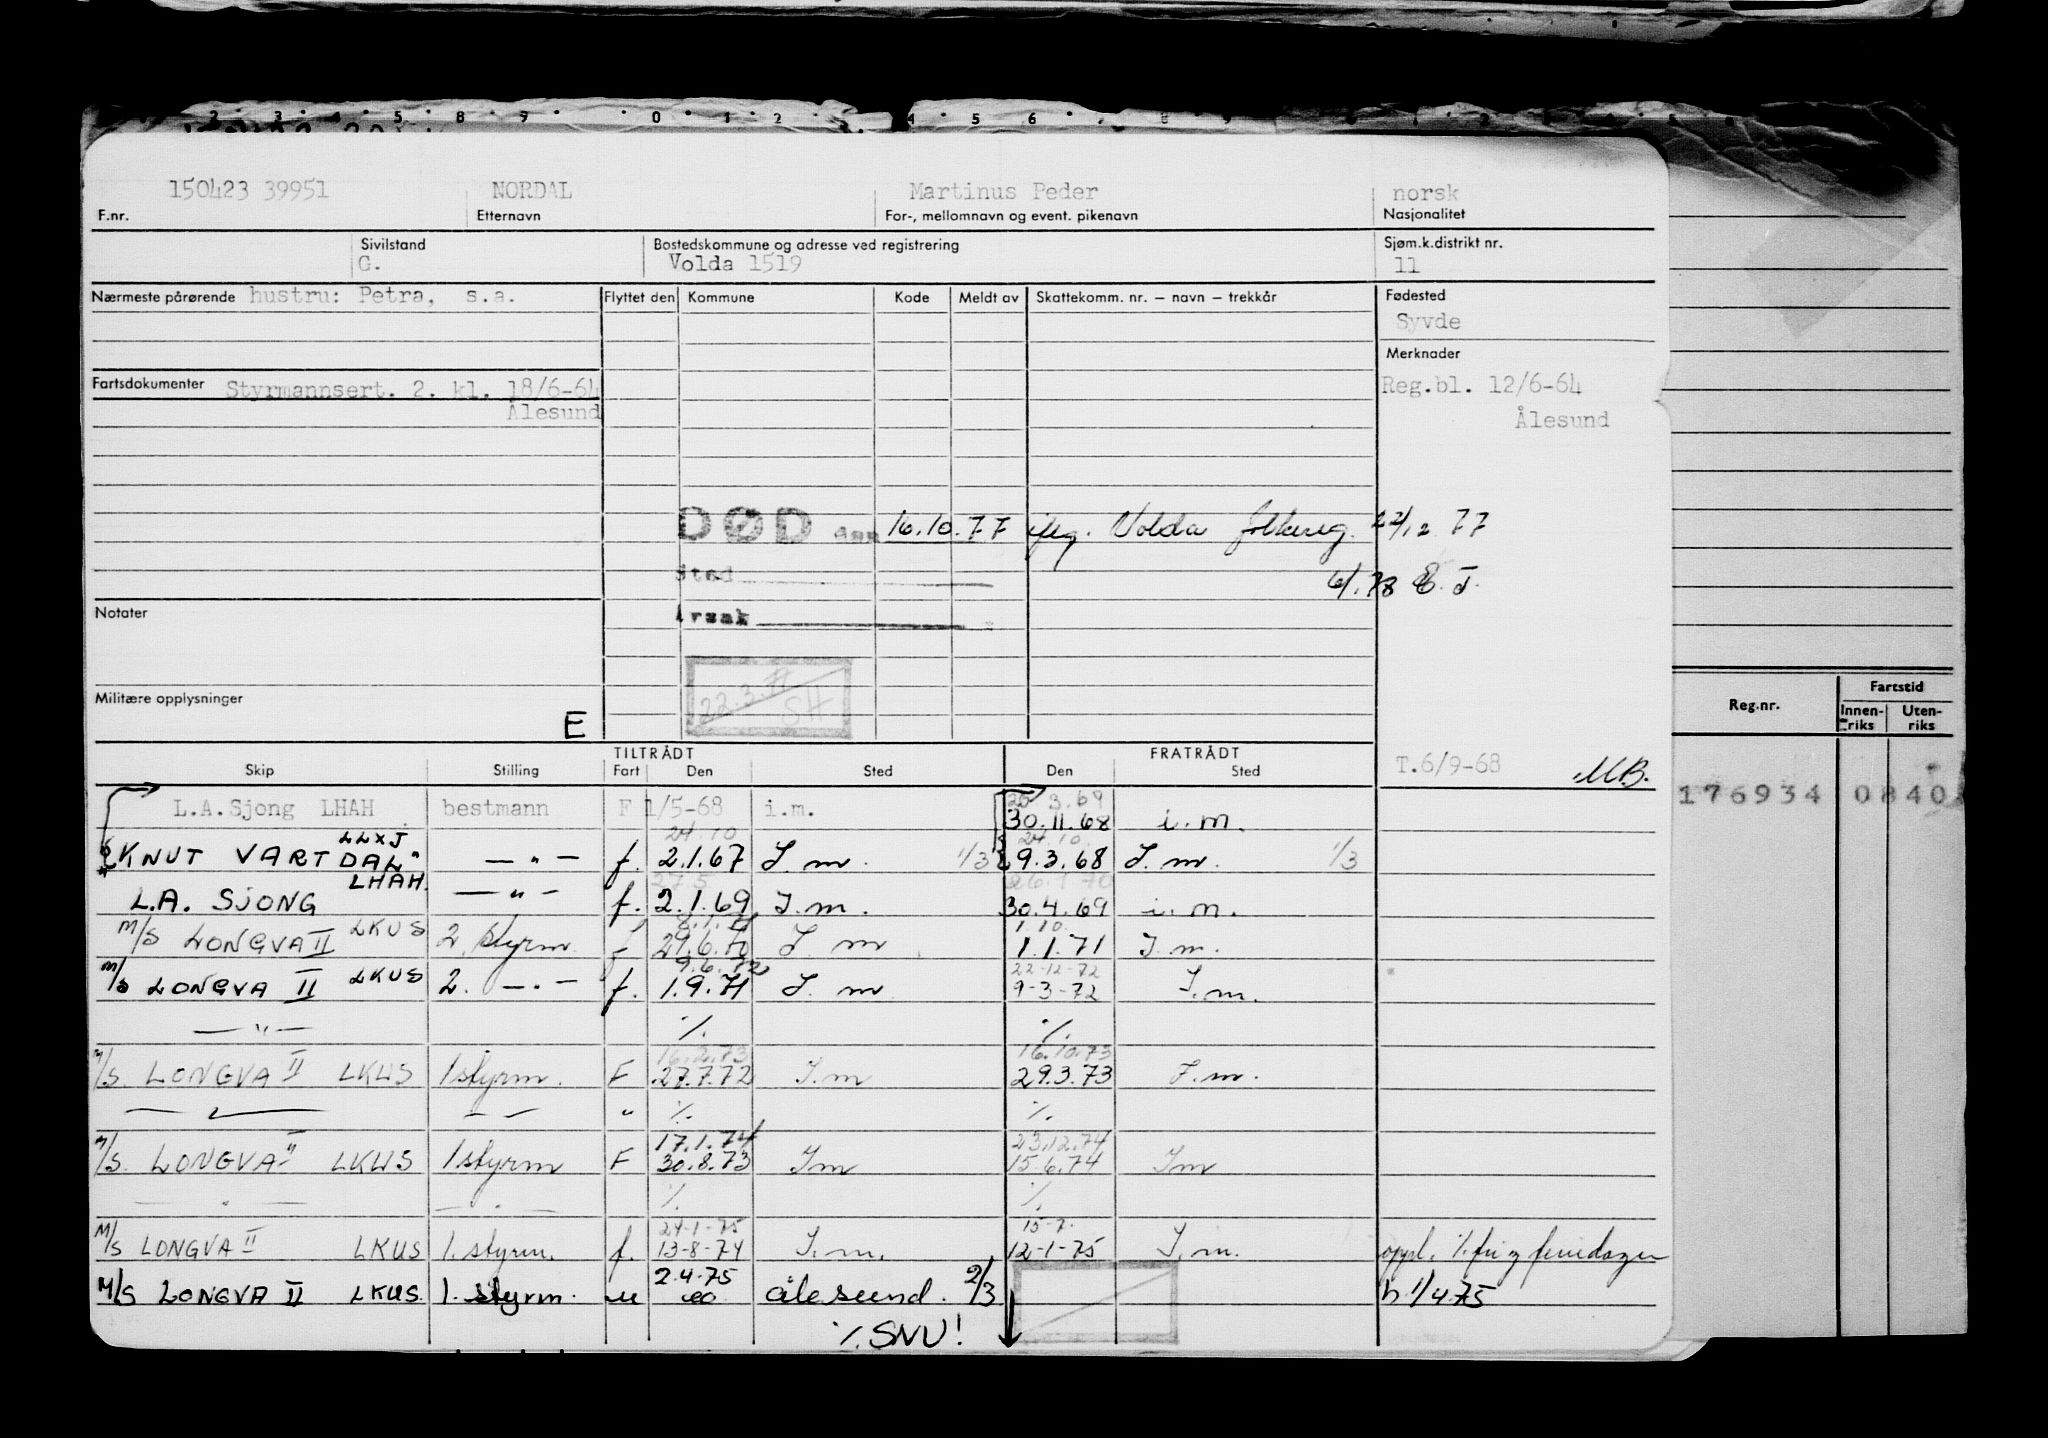 150423 39951 NORDAL Martinus Peder norsk
F.nr. Etternavn For-, mellomnavn og event. pikenavn Nasjonalitet
Sivilstand Bostedskommune og adresse ved registrering Sjøm.k.distrikt nr.
G. Volda 1519 11
Nærmeste pårørende hustru: Petra, s.a. Flyttet den Kommune Kode Meldt av Skattekomm. nr. — navn — trekkår Fødested
Syvde
Merknader
Fartsdokumenter Styrmannsert. 2. kl. 18/6-64 Reg.bl. 12/6-64
Ålesund Ålesund
DØD den 16.10.77 ifлg. Volda folkereg. 22/12 77
Sted 6/1.78 E.J.
Årsak
Notater
22.3.77
SH
Militære opplysninger
E
Reg.nr. Fartstid
Innen-riks Uten-riks
TILTRÅDT FRATRÅDT
Skip Stilling Fart Den Sted Den Sted T.6/9-68 MB.
176934 0840
25 3.69
L.A.Sjong LHAH bestmann F 1/5-68 i.m. 30.11.68 i.m.
LLXJ 24.10 24.10
"KNUT VARTDAL" — " — f. 2.1.67 I.m. 1/3 9.3.68 I.m. 1/3
LHAH 27.5 26.1.70
L.A. SJONG — " — f. 2.1.69 I.m. 30.4.69 i.m.
1.10.
M/S LONGVA II LKUS 2. styrm. f 29.6.70 I m 1.1.71 I.m.
9.6.72 22-12-72
M/S LONGVA II LKUS 2. — " — f. 1.9.71 I.m 9-3-72 I.m.
— " — ./. ./.
16.2.73 16.10.73
M/S. LONGVA II LKUS 1 styrm. F 27.7.72 I.m 29.3.73 I.m.
— " — — " — " ./. ./.
17.1.74 23.12.74
M/S. LONGVA II LKUS 1 styrm F 30.8.73 I m 15.6.74 I m
— " — — " — ./. ./.
24-1-75 15-7.
M/S LONGVA II LKUS 1. styrm. f. 13-8-74 I.m. 12-1-75 I.m. oppl. ./. fri og feriedager
2.4.75
M/S LONGVA II LKUS. 1. styrm. u ålesund. 2/3 h. 1/4 75
./. SNU!